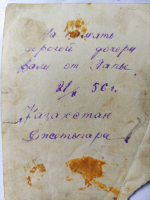 На память
дорогой дочери
Вали от Папы.
21/II 56 г.
г. Казахстан
Джетыгара